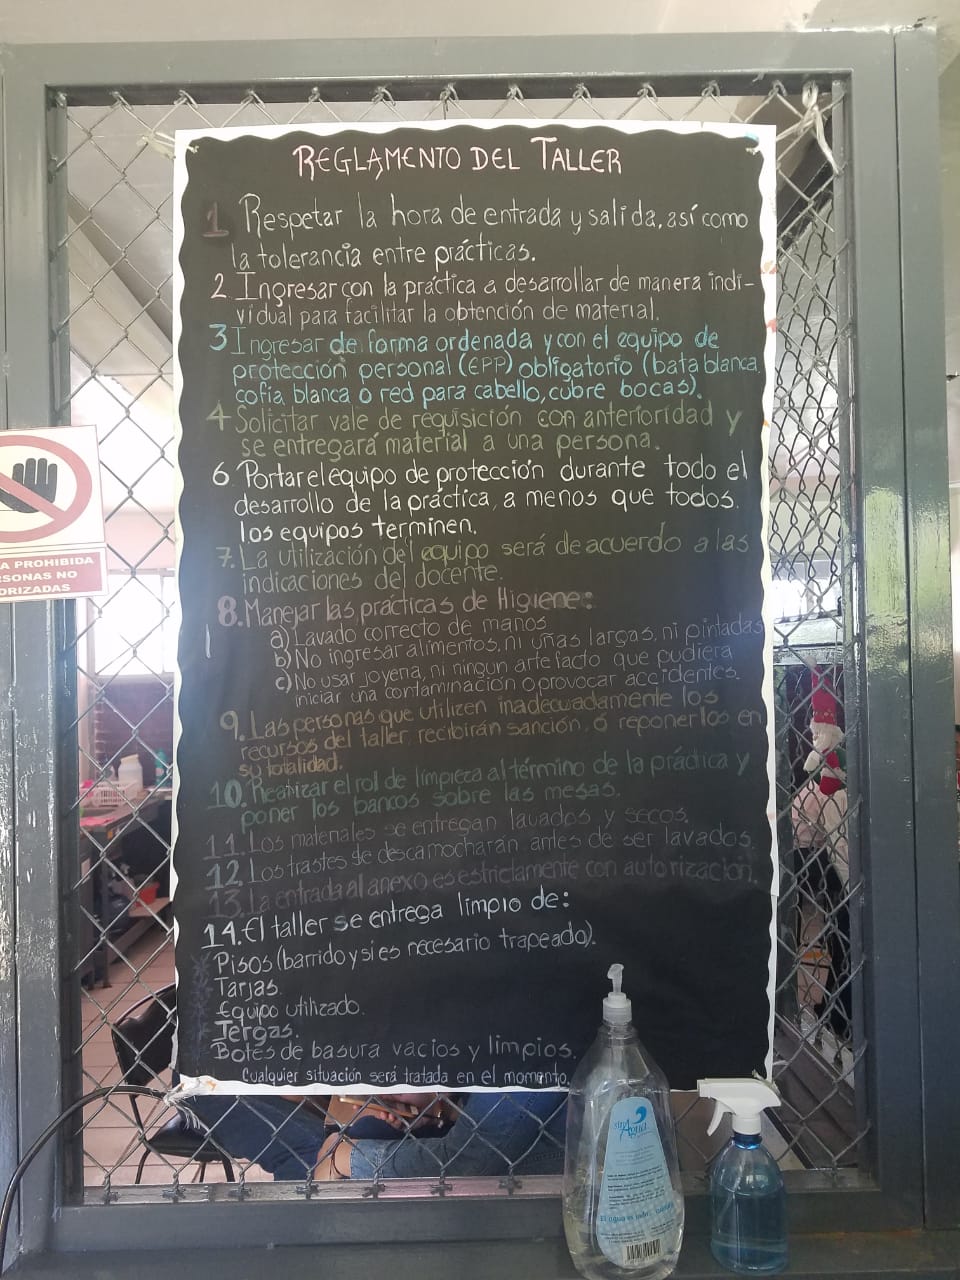 REGLAMENTO DEL TALLER
1 Respetar la hora de entrada y salida, así como
la tolerancia entre prácticas.
2 Ingresar con la práctica a desarrollar de manera indi-
vidual para facilitar la obtención de material.
3 Ingresar de forma ordenada y con el equipo de
protección personal (EPP) obligatorio (bata blanca,
cofia blanca o red para cabello, cubre bocas).
4 Solicitar vale de requisición con anterioridad y
se entregará material a una persona.
6 Portar el equipo de protección durante todo el
desarrollo de la práctica, a menos que todos
los equipos terminen.
7. La utilización del equipo será de acuerdo a las
indicaciones del docente.
8. Manejar las prácticas de Higiene:
a) Lavado correcto de manos
b) No ingresar alimentos, ni uñas largas, ni pintadas
c) No usar joyeria, ni ningun artefacto que pudiera
iniciar una contaminación o provocar accidentes.
9. Las personas que utilizen inadecuadamente los
recursos del taller, recibirán sanción, ó reponerlos en
su totalidad.
10. Realizar el rol de limpieza al término de la práctica y
poner los bancos sobre las mesas.
11. Los materiales se entregan lavados y secos.
12. Los trastes se descamocharán antes de ser lavados.
13. La entrada al anexo es estrictamente con autorización.
14. El taller se entrega limpio de:
Pisos (barrido y si es necesario trapeado).
Tarjas.
Equipo utilizado.
Jergas.
Botes de basura vacios y limpios.
Cualquier situación será tratada en el momento.
A PROHIBIDA
SONAS NO
ORIZADAS
Agua